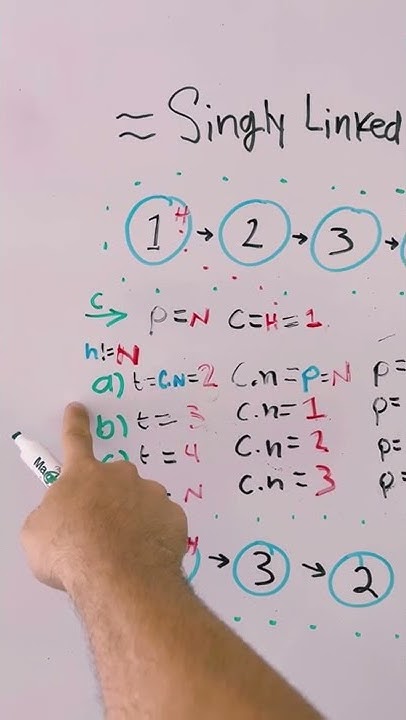 ≈ Singly Linked
1 H → 2 → 3 →
C → p=N C=H=1
n!=N
a) t=C.N=2 C.n=p=N p=
b) t=3 C.n=1 p=
t=4 C.n=2 p=
N C.n=3 p=
H → 3 → 2
Ma